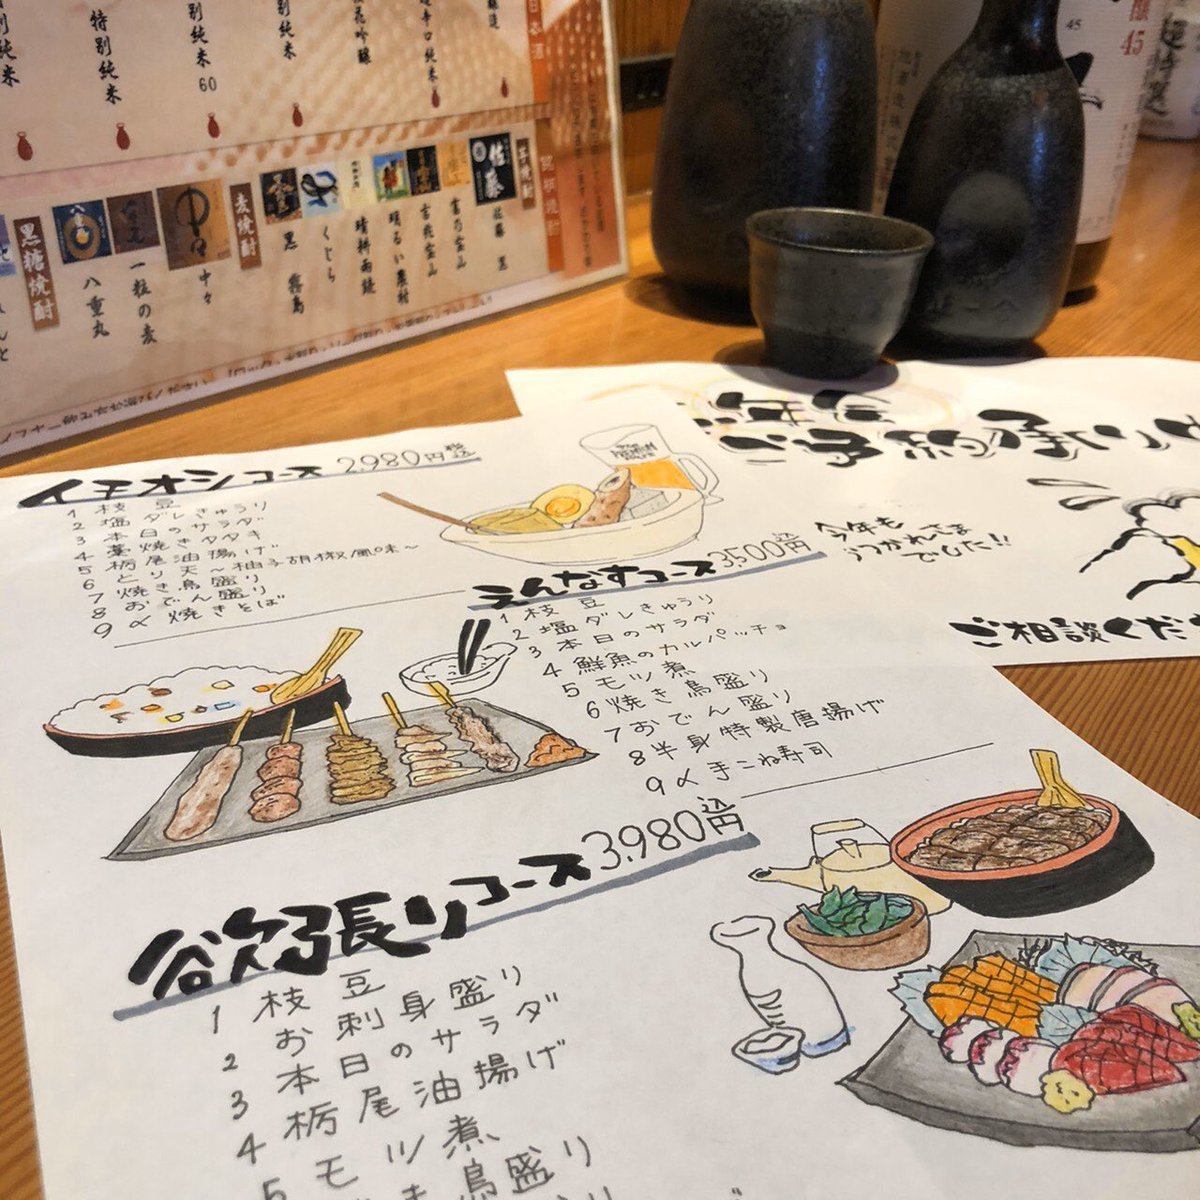 日本酒
特別純米
特別純米
60
芋焼酎
佐藤
佐藤 黒
富乃宝山
吉兆宝山
明るい農村
晴耕雨読
くじら
黒 霧島
麦焼酎
中々
一粒の麦
八重丸
黒糖焼酎
45
45
イモオシコース 2,980円税込
1 枝豆
2 塩ダレきゅうり
3 本日のサラダ
4 藁焼きタタキ
5 栃尾油揚げ
6 とり天～柚子胡椒風味～
7 焼き鳥盛り
8 おでん盛り
9 〆焼きそば
えんなすコース 3,500税込円
1 枝豆
2 塩ダレきゅうり
3 本日のサラダ
4 鮮魚のカルパッチョ
5 モツ煮
6 焼き鳥盛り
7 おでん盛り
8 半身特製唐揚げ
9 〆手こね寿司
欲張りコース 3,980税込円
1 枝豆
2 お刺身盛り
3 本日のサラダ
4 栃尾油揚げ
5 モツ煮
鳥盛り
ご予約承り中
今年も
おつかれさま
でした!!
ご相談くだ